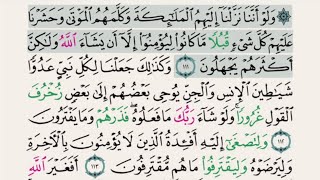 وَلَوْ أَنَّنَا نَزَّلْنَا إِلَيْهِمُ الْمَلَٰٓئِكَةَ وَكَلَّمَهُمُ الْمَوْتَىٰ وَحَشَرْنَا
عَلَيْهِمْ كُلَّ شَىْءٍ قُبُلًا مَّا كَانُوا۟ لِيُؤْمِنُوٓا۟ إِلَّآ أَن يَشَآءَ اللَّهُ وَلَٰكِنَّ
أَكْثَرَهُمْ يَجْهَلُونَ ١١١ وَكَذَٰلِكَ جَعَلْنَا لِكُلِّ نَبِىٍّ عَدُوًّا
شَيَٰطِينَ الْإِنسِ وَالْجِنِّ يُوحِى بَعْضُهُمْ إِلَىٰ بَعْضٍ زُخْرُفَ
الْقَوْلِ غُرُورًا وَلَوْ شَآءَ رَبُّكَ مَا فَعَلُوهُ فَذَرْهُمْ وَمَا يَفْتَرُونَ ١١٢
وَلِتَصْغَىٰٓ إِلَيْهِ أَفْـِٔدَةُ الَّذِينَ لَا يُؤْمِنُونَ بِالْـَٔاخِرَةِ
وَلِيَرْضَوْهُ وَلِيَقْتَرِفُوا۟ مَا هُم مُّقْتَرِفُونَ ١١٣ أَفَغَيْرَ اللَّهِ